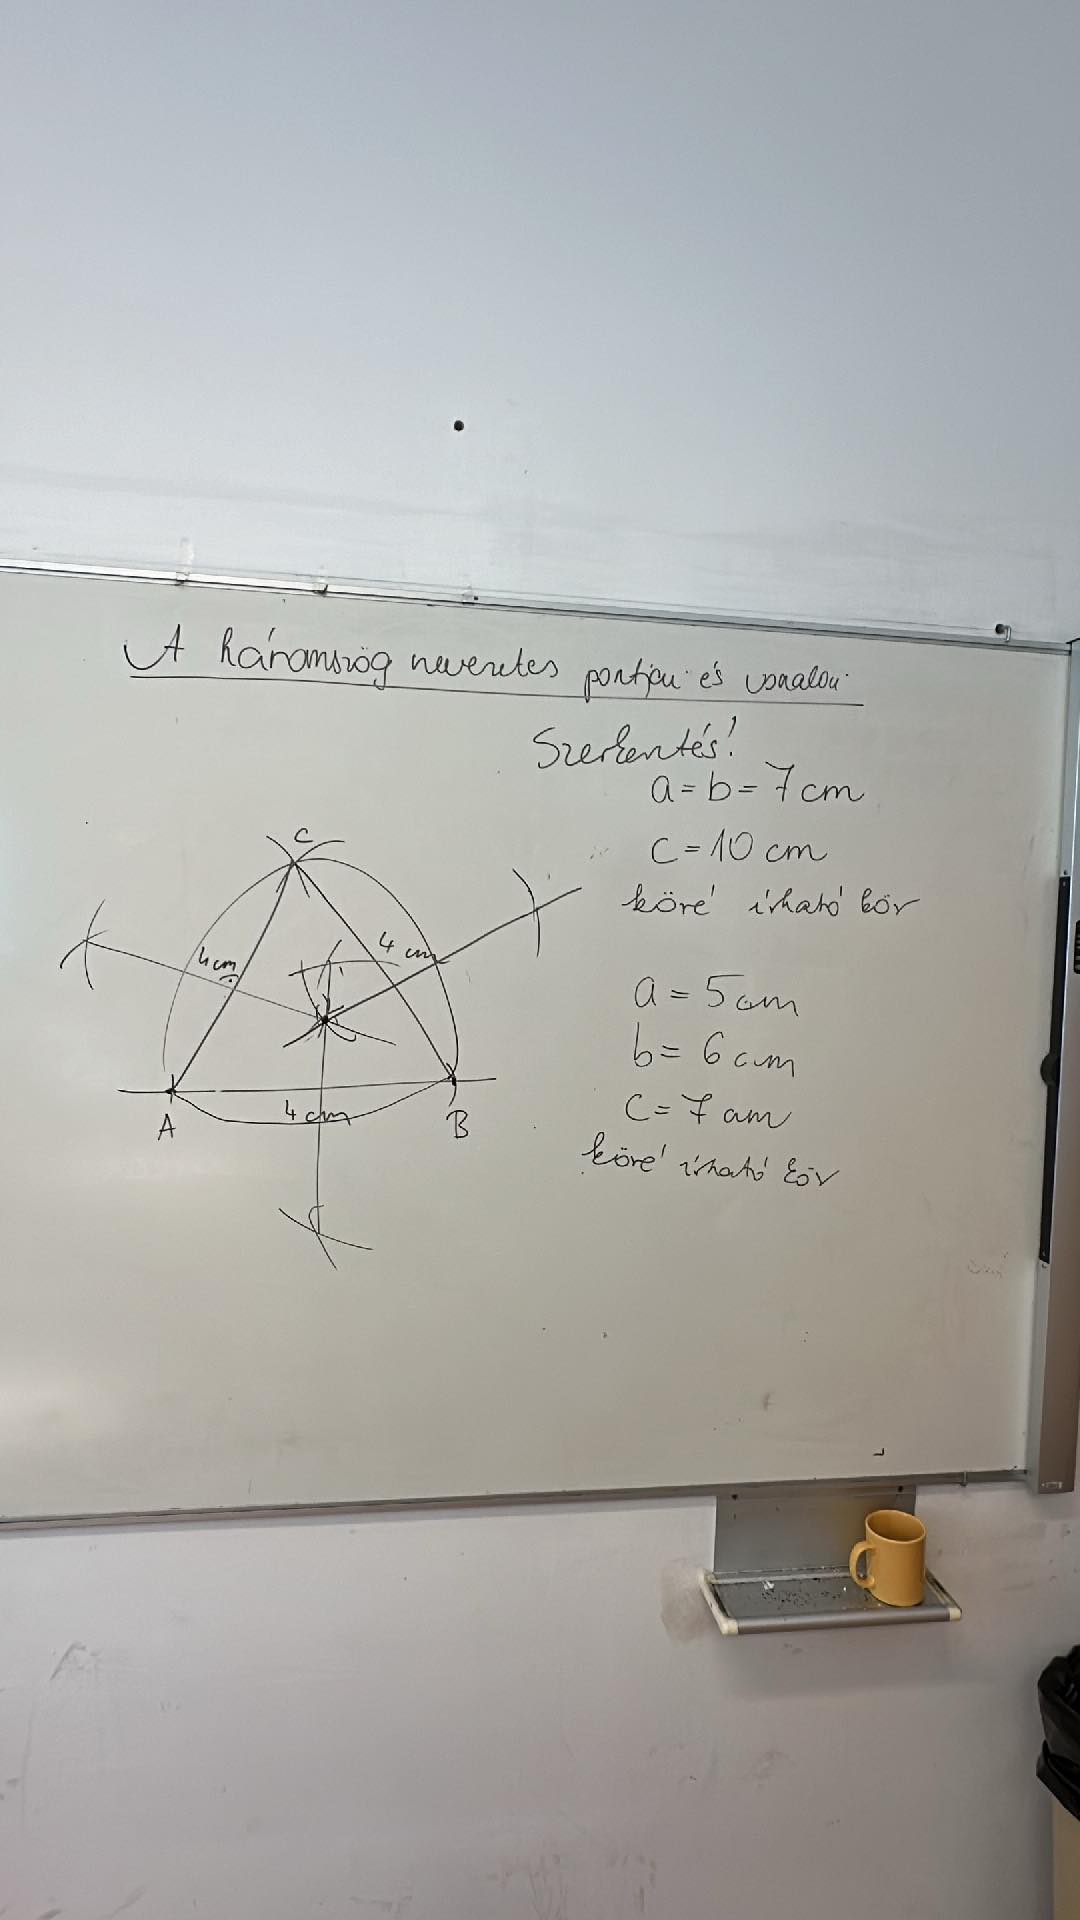 A háromszög nevezetes pontjai és vonalai
Szerkentés!
a = b = 7 cm
c = 10 cm
köré írható kör
a = 5 cm
b = 6 cm
c = 7 cm
köré írható kör
C
4 cm
4 cm
4 cm
A
B